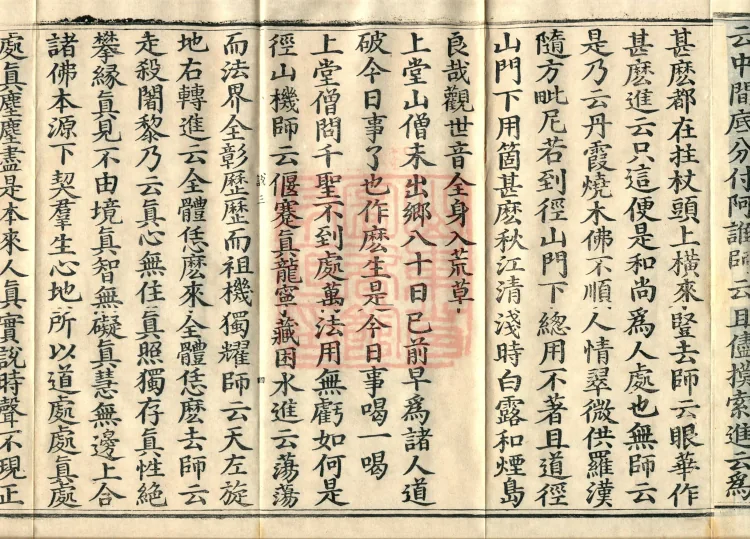 云中間底分付阿誰師云且儘摸索進云爲
甚麼都在拄杖頭上橫來竪去師云眼華作
甚麼進云只這便是和尚爲人處也無師云
是乃云丹霞燒木佛不順人情翠微供羅漢
隨方毗尼若到徑山門下總用不著且道徑
山門下用箇甚麼秋江清淺時白露和煙島
良哉觀世音全身入荒草
上堂山僧未出鄉八十日已前早爲諸人道
破今日事了也作麼生是今日事喝一喝
上堂僧問千聖不到處萬法用無虧如何是
徑山機師云偃蹇眞龍寧藏困水進云蕩蕩
而法界全彰歷歷而祖機獨耀師云天左旋
地右轉進云全體恁麼來全體恁麼去師云
走殺闍黎乃云眞心無住眞照獨存眞性絕
攀緣眞見不由境眞智無礙眞慧無邊上合
諸佛本源下契羣生心地所以道處處眞處
處眞塵塵盡是本來人眞實說時聲不現正